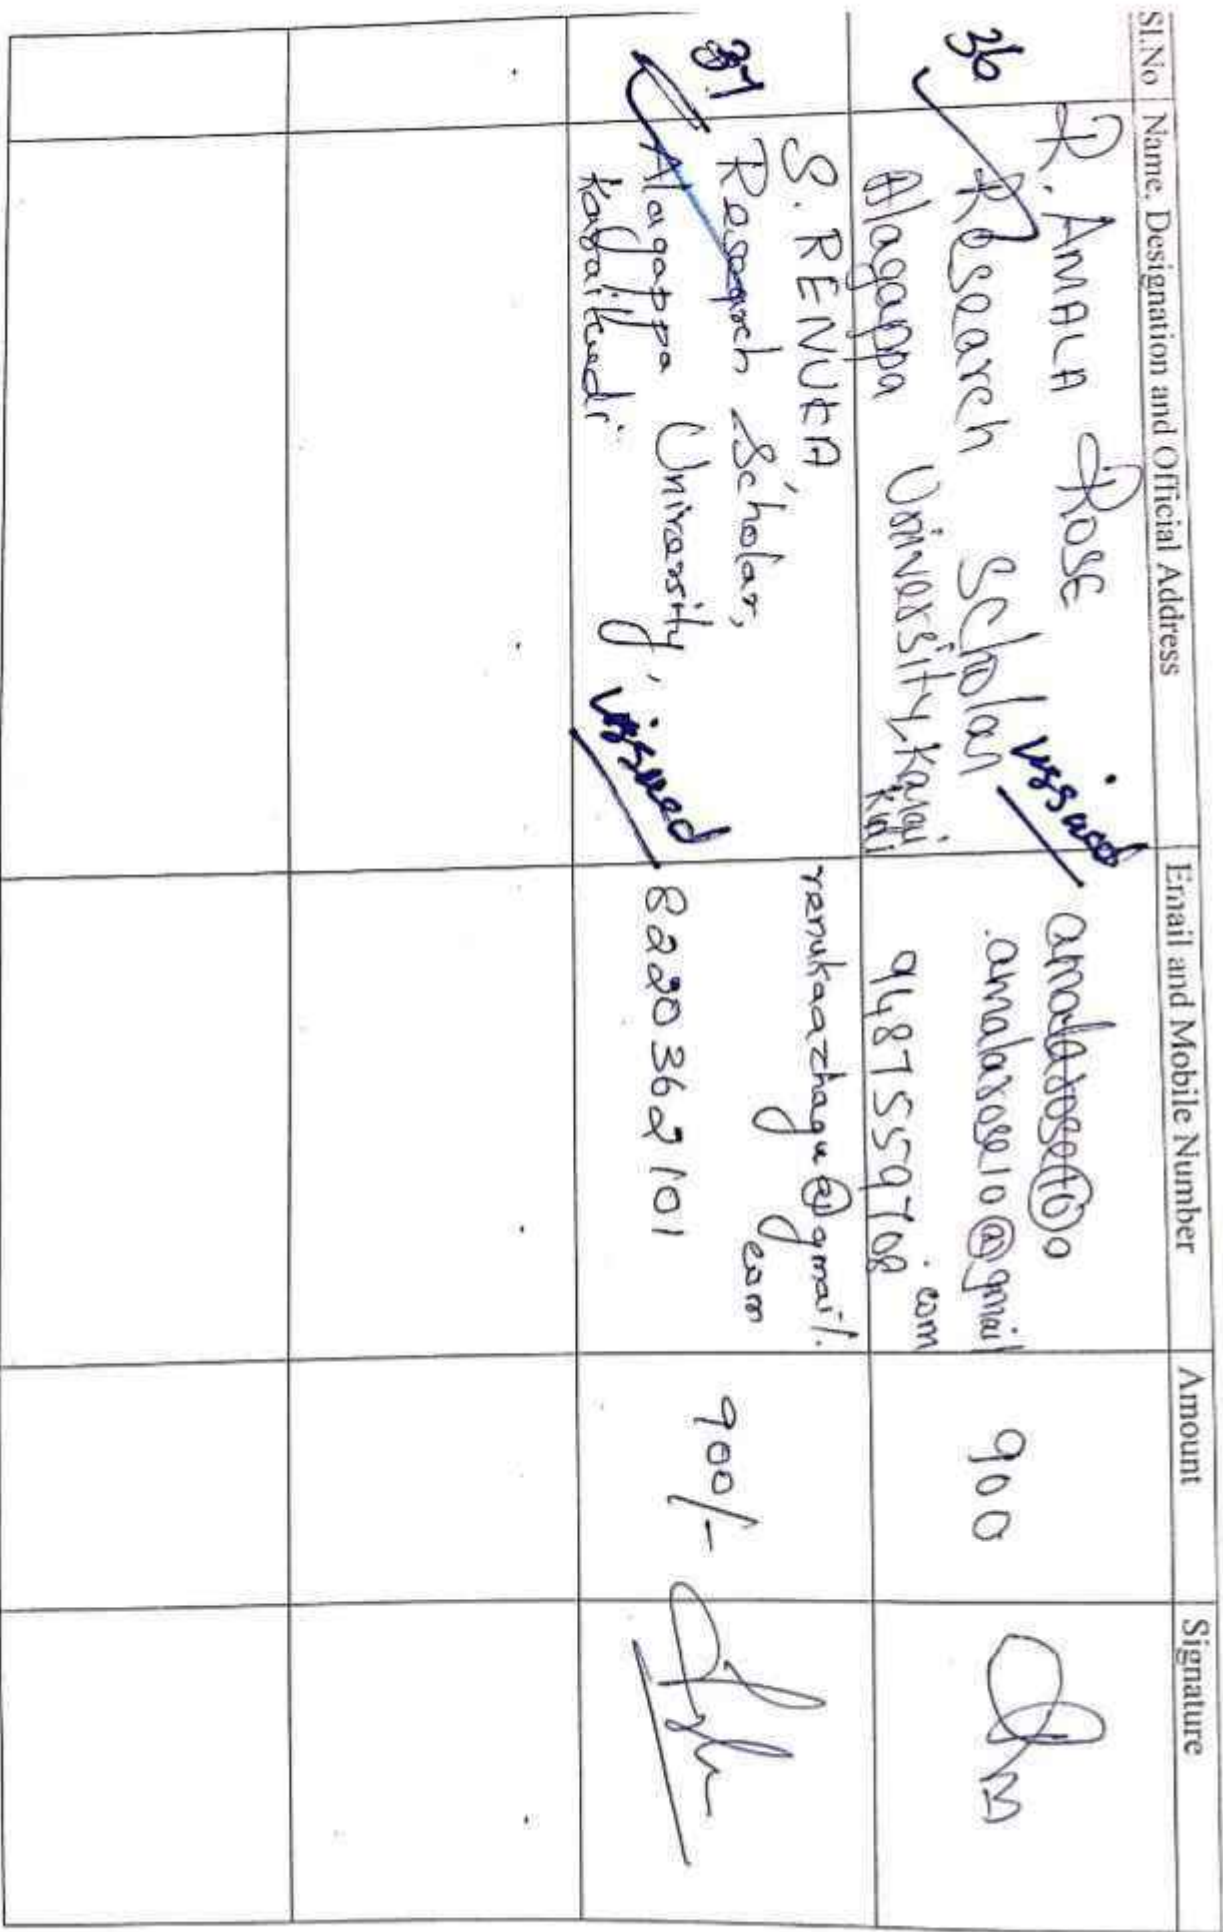 Sl.No Name, Designation and Official Address Email and Mobile Number Amount Signature
36 R. AMALA ROSE
Research Scholar
Alagappa University, Karai
kudi
issued
amalarose10@gmail
.com
9487559708
900
37 S. RENUKA,
Research Scholar,
Alagappa University,
Karaikudi.
issued
renukaazhagu@gmail.
com
8220362101
900/-